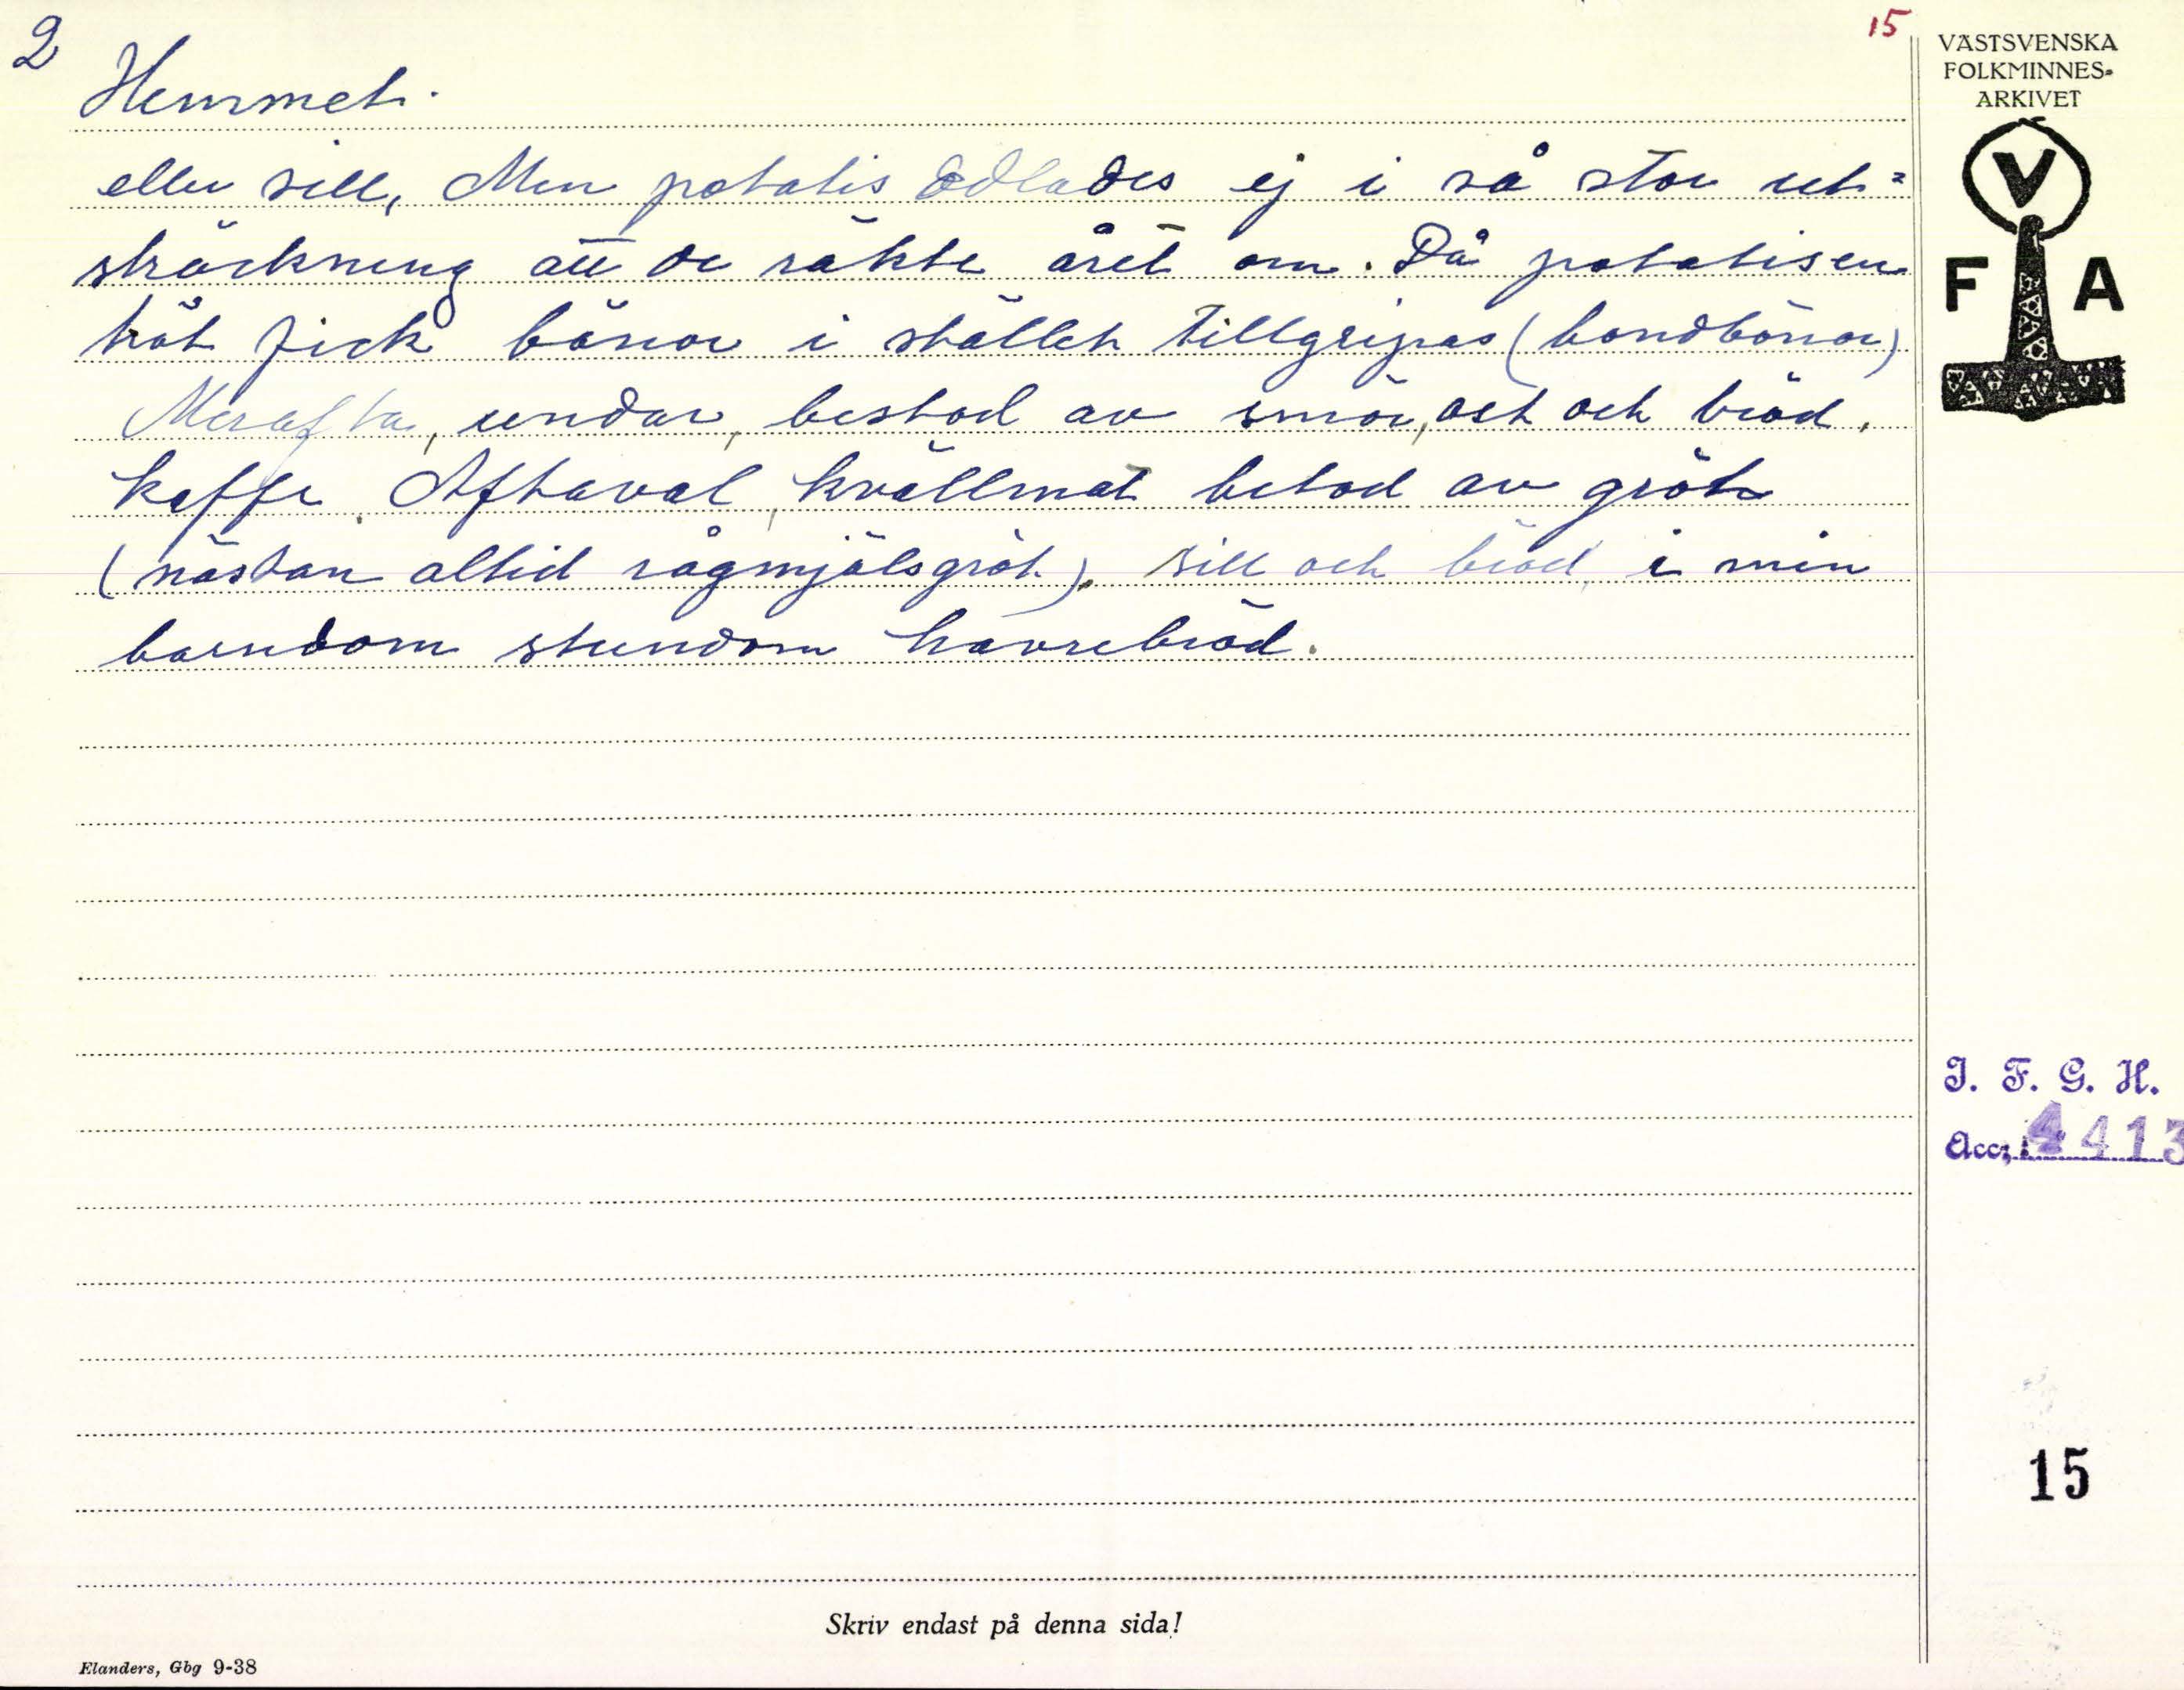 2
15
Hemmet.
eller sill, Men potatis odlades ej i så stor ut=
sträckning att de räkte året om. Då potatisen
tröt fick bönor i stället tillgripas (bondbönor)
Merafta, undar, bestod av smör, ost och bröd,
kaffe. Aftaval, kvällmat betod av gröt
(nästan alltid rågmjölsgröt), sill och bröd, i min
barndom stundom havrebröd.
VÄSTSVENSKA
FOLKMINNES-
ARKIVET
V
F A
I. F. G. H.
Acc. 4413
15
Skriv endast på denna sida!
Elanders, Gbg 9-38